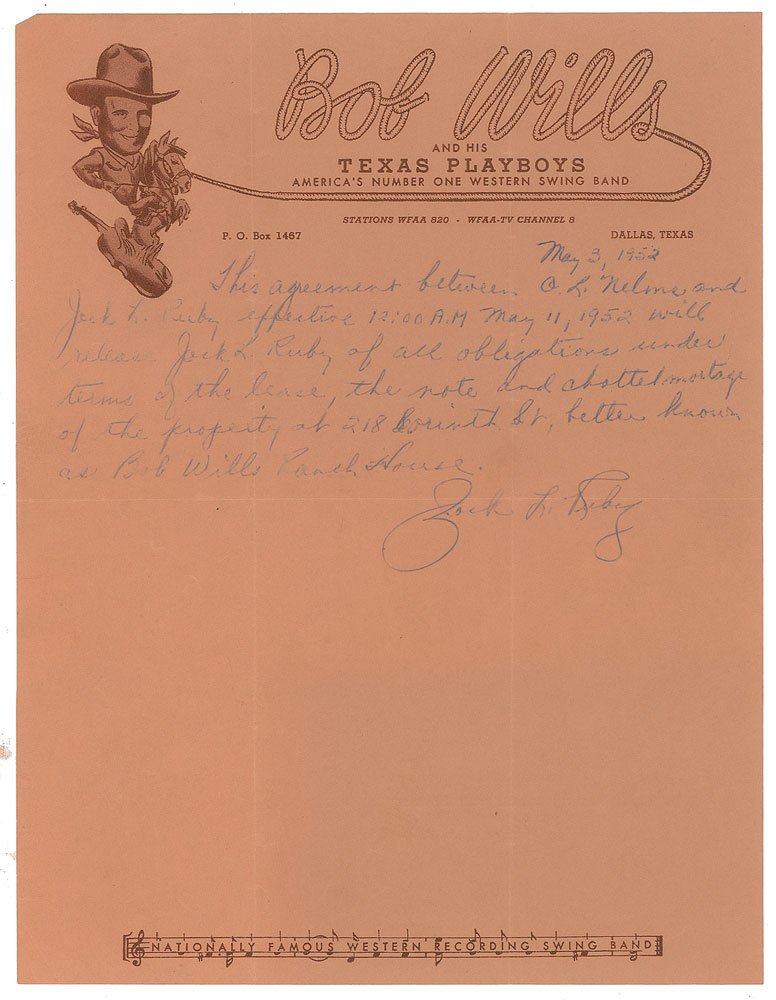 Bob Wills
AND HIS
TEXAS PLAYBOYS
AMERICA'S NUMBER ONE WESTERN SWING BAND
STATIONS WFAA 820 - WFAA-TV CHANNEL 8
P. O. Box 1467
DALLAS, TEXAS
May 3, 1952
This agreement between O. L. Nelms and
Jack L. Ruby effective 12:00 A.M May 11, 1952 will
release Jack L. Ruby of all obligations under
terms of the lease, the note and chattel mortage
of the property at 218 Corinth St, better known
as Bob Wills Ranch House.
Jack L. Ruby
NATIONALLY FAMOUS WESTERN RECORDING SWING BAND